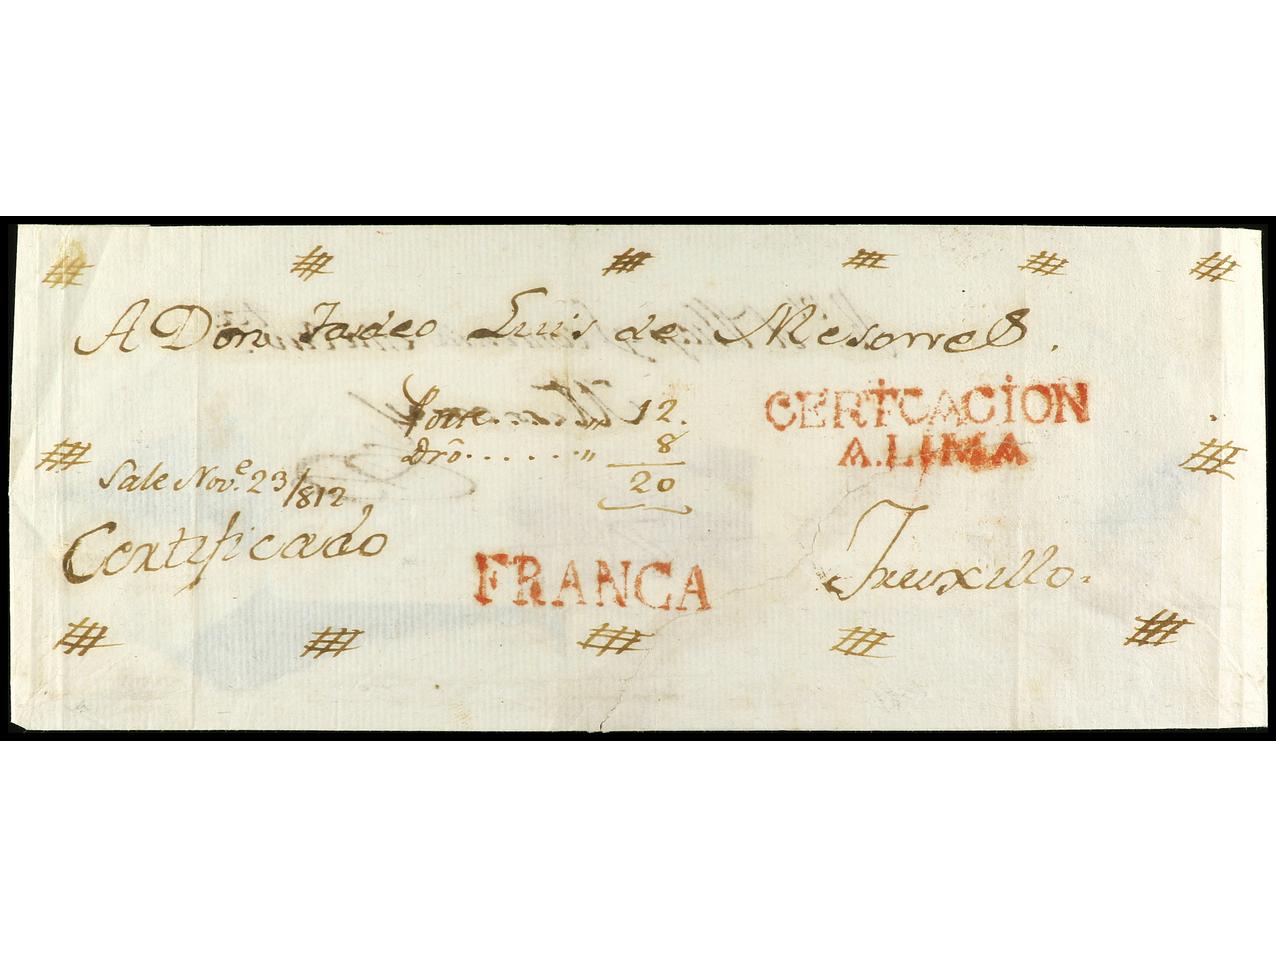 A Don Tadeo Luis de Mesorres.
Porte....... „ 12.
CERTCACION
Dro....... „ 8
A.LIMA
Sale Nov.e 23/812
20
Certificado
FRANCA
Truxillo.